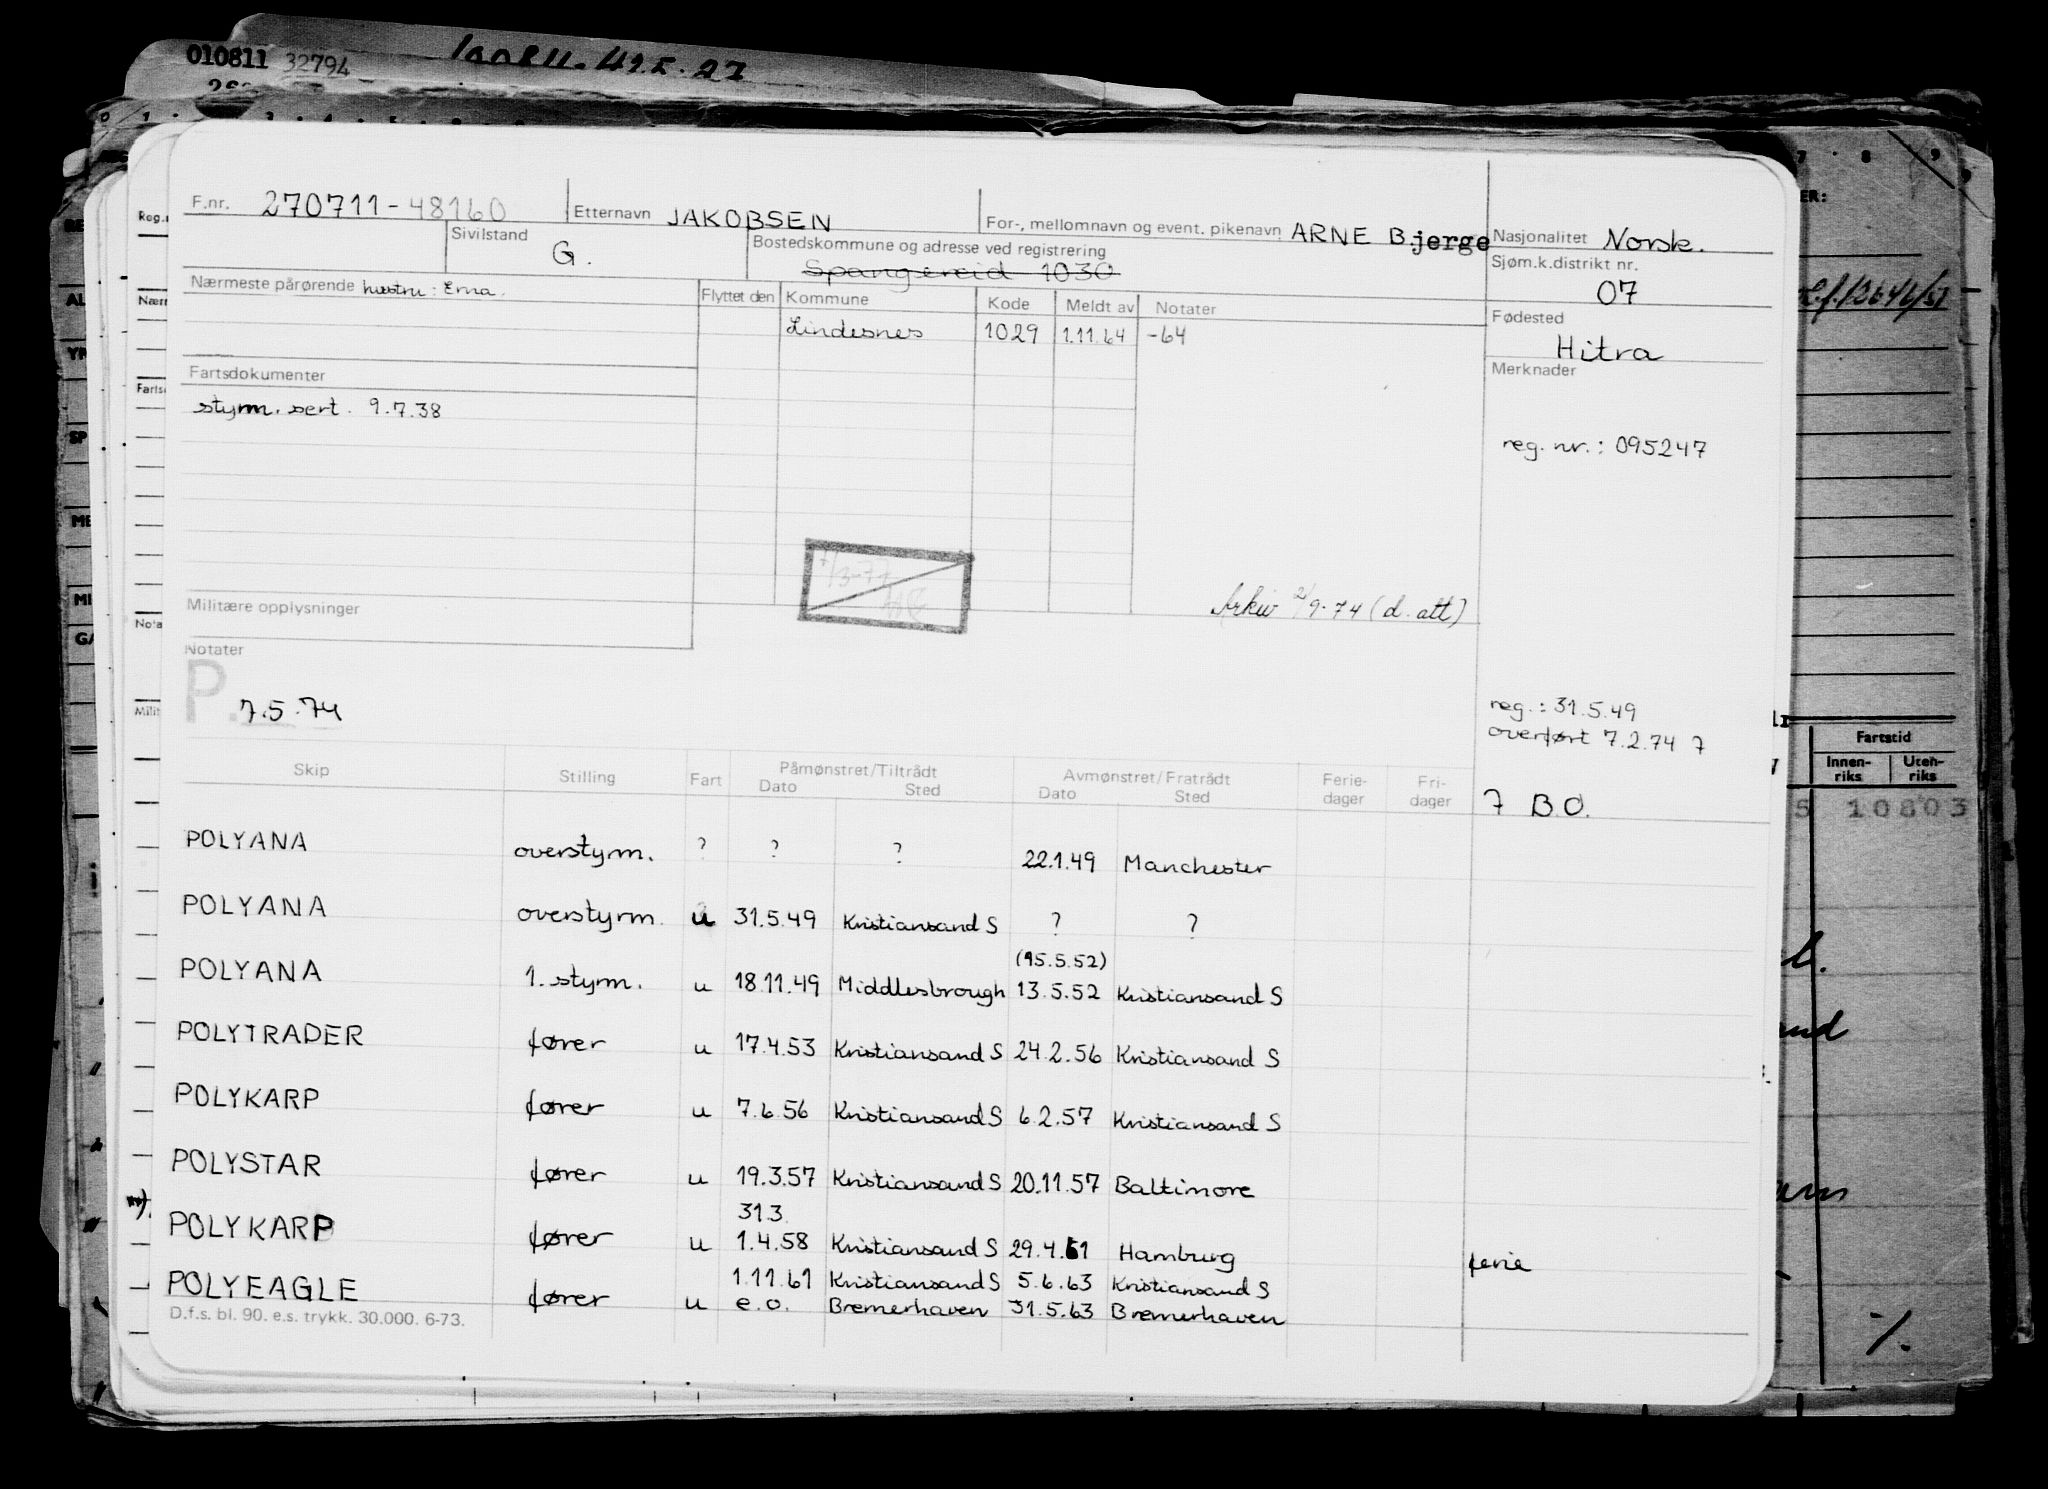 010811 32794
F.nr. 270711-48160 Etternavn JAKOBSEN For-, mellomnavn og event. pikenavn ARNE B.jerge Nasjonalitet Norsk.
Sivilstand G. Bostedskommune og adresse ved registrering Spangereid 1030 Sjøm.k.distrikt nr. 07
Nærmeste pårørende hustru: Erna. Flyttet den Kommune Kode Meldt av Notater Fødested Hitra
Lindesnes 1029 1.11.64 -64
Fartsdokumenter Merknader
styrm. sert. 9.7.38
reg. nr.: 095247
Militære opplysninger
Arkiv 2/9-74 (d. att)
Notater
P. 7.5.74
reg.: 31.5.49
overført 7.2.74 7
Skip Stilling Fart Påmønstret/Tiltrådt Avmønstret/Fratrådt Ferie- Fri-
Dato Sted Dato Sted dager dager
7 B.O.
POLYANA overstyrm. ? ? ? 22.1.49 Manchester
POLYANA overstyrm. u 31.5.49 Kristiansand S ? ?
(15.5.52)
POLYANA 1. styrm. u 18.11.49 Middlesbrough 13.5.52 Kristiansand S
POLYTRADER fører u 17.4.53 Kristiansand S 24.2.56 Kristiansand S
POLYKARP fører u 7.6.56 Kristiansand S 6.2.57 Kristiansand S
POLYSTAR fører u 19.3.57 Kristiansand S 20.11.57 Baltimore
31.3.
POLYKARP fører u 1.4.58 Kristiansand S 29.4.61 Hamburg ferie
1.11.61 Kristiansand S 5.6.63 Kristiansand S
POLYEAGLE fører u e.o. Bremerhaven 31.5.63 Bremerhaven
D.f.s. bl. 90. e.s. trykk. 30.000. 6-73.
Fartstid
Innen-riks Uten-riks
5 10803